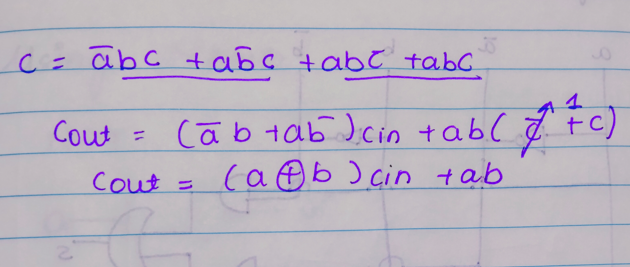 c = a̅bc + ab̅c + abc̅ + abc
Cout = (a̅b + ab̅)cin + ab(c̅ + c) 1
Cout = (a⊕b)cin + ab